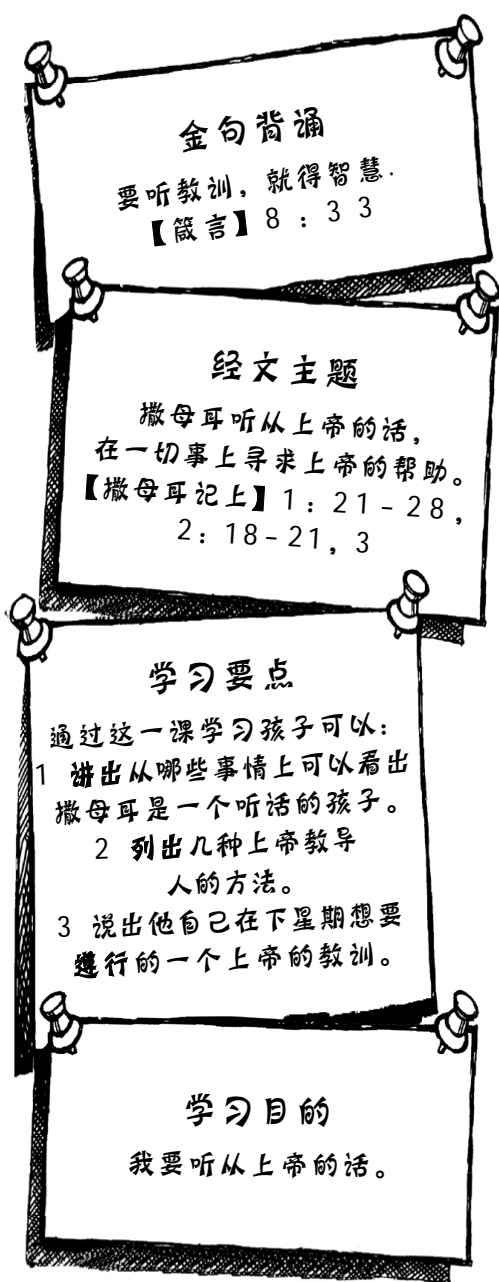 金句背诵
要听教训，就得智慧.
【箴言】8：33
经文主题
撒母耳听从上帝的话，
在一切事上寻求上帝的帮助。
【撒母耳记上】1：21-28，
2：18-21，3
学习要点
通过这一课学习孩子可以：
1 讲出从哪些事情上可以看出
撒母耳是一个听话的孩子。
2 列出几种上帝教导
人的方法。
3 说出他自己在下星期想要
遵行的一个上帝的教训。
学习目的
我要听从上帝的话。